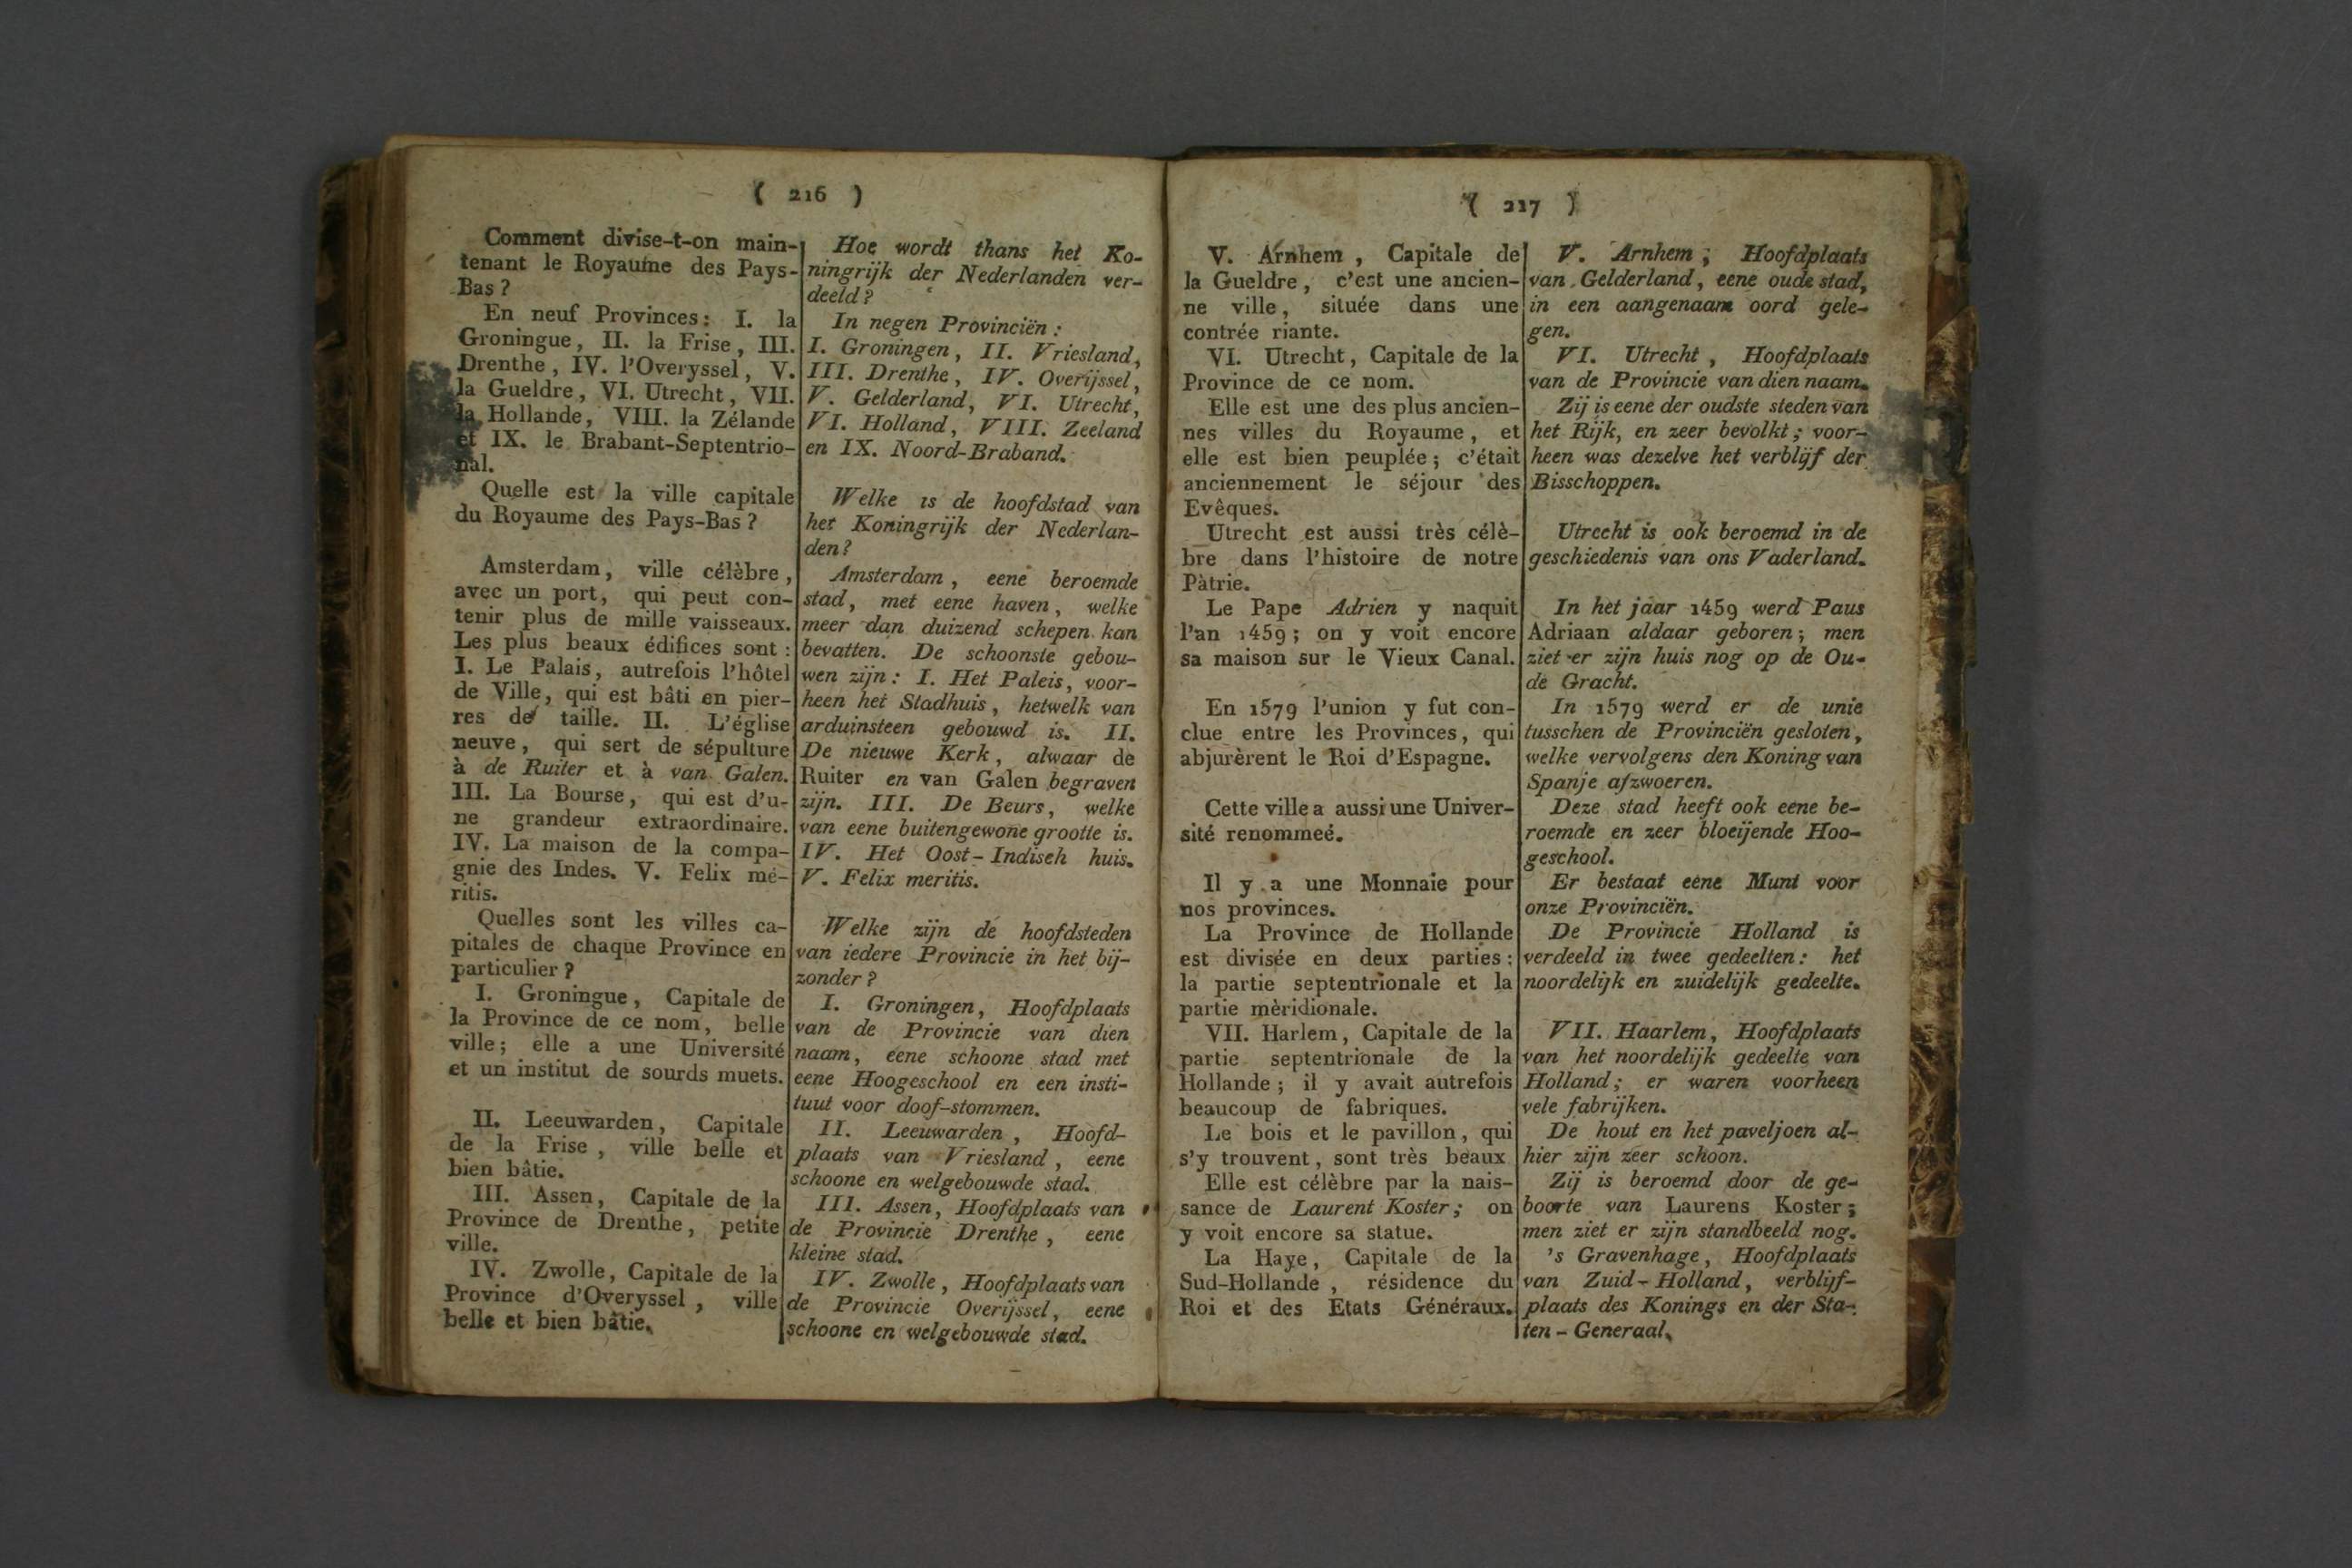 ( 216 )
Comment divise-t-on main-
tenant le Royaume des Pays-
Bas ?
En neuf Provinces: I. la
Groningue, II. la Frise, III.
Drenthe, IV. l'Overyssel, V.
la Gueldre, VI. Utrecht, VII.
la Hollande, VIII. la Zélande
et IX. le Brabant-Septentrio-
nal.
Quelle est la ville capitale
du Royaume des Pays-Bas ?
Amsterdam, ville célèbre,
avec un port, qui peut con-
tenir plus de mille vaisseaux.
Les plus beaux édifices sont :
I. Le Palais, autrefois l'hôtel
de Ville, qui est bâti en pier-
res de taille. II. L'église
neuve, qui sert de sépulture
à de Ruiter et à van Galen.
III. La Bourse, qui est d'u-
ne grandeur extraordinaire.
IV. La maison de la compa-
gnie des Indes. V. Felix mé-
ritis.
Quelles sont les villes ca-
pitales de chaque Province en
particulier ?
I. Groningue, Capitale de
la Province de ce nom, belle
ville; elle a une Université
et un institut de sourds muets.
II. Leeuwarden, Capitale
de la Frise, ville belle et
bien bâtie.
III. Assen, Capitale de la
Province de Drenthe, petite
ville.
IV. Zwolle, Capitale de la
Province d'Overyssel, ville
belle et bien bâtie.
Hoe wordt thans het Ko-
ningrijk der Nederlanden ver-
deeld ?
In negen Provinciën :
I. Groningen, II. Vriesland,
III. Drenthe, IV. Overijssel,
V. Gelderland, VI. Utrecht,
VI. Holland, VIII. Zeeland
en IX. Noord-Braband.
Welke is de hoofdstad van
het Koningrijk der Nederlan-
den?
Amsterdam, eene beroemde
stad, met eene haven, welke
meer dan duizend schepen kan
bevatten. De schoonste gebou-
wen zijn: I. Het Paleis, voor-
heen het Stadhuis, hetwelk van
arduinsteen gebouwd is. II.
De nieuwe Kerk, alwaar de
Ruiter en van Galen begraven
zijn. III. De Beurs, welke
van eene buitengewone grootte is.
IV. Het Oost-Indisch huis.
V. Felix meritis.
Welke zijn de hoofdsteden
van iedere Provincie in het bij-
zonder ?
I. Groningen, Hoofdplaats
van de Provincie van dien
naam, eene schoone stad met
eene Hoogeschool en een insti-
tuut voor doof-stommen.
II. Leeuwarden, Hoofd-
plaats van Vriesland, eene
schoone en welgebouwde stad.
III. Assen, Hoofdplaats van
de Provincie Drenthe, eene
kleine stad.
IV. Zwolle, Hoofdplaats van
de Provincie Overijssel, eene
schoone en welgebouwde stad.
( 217 )
V. Arnhem, Capitale de
la Gueldre, c'est une ancien-
ne ville, située dans une
contrée riante.
VI. Utrecht, Capitale de la
Province de ce nom.
Elle est une des plus ancien-
nes villes du Royaume, et
elle est bien peuplée; c'était
anciennement le séjour des
Evêques.
Utrecht est aussi très célè-
bre dans l'histoire de notre
Pàtrie.
Le Pape Adrien y naquit
l'an 1459; on y voit encore
sa maison sur le Vieux Canal.
En 1579 l'union y fut con-
clue entre les Provinces, qui
abjurèrent le Roi d'Espagne.
Cette ville a aussi une Univer-
sité renommeé.
Il y a une Monnaie pour
nos provinces.
La Province de Hollande
est divisée en deux parties:
la partie septentrionale et la
partie mèridionale.
VII. Harlem, Capitale de la
partie septentrionale de la
Hollande; il y avait autrefois
beaucoup de fabriques.
Le bois et le pavillon, qui
s'y trouvent, sont très beaux
Elle est célèbre par la nais-
sance de Laurent Koster; on
y voit encore sa statue.
La Haye, Capitale de la
Sud-Hollande, résidence du
Roi et des Etats Généraux.
V. Arnhem; Hoofdplaats
van Gelderland, eene oude stad,
in een aangenaam oord gele-
gen.
VI. Utrecht, Hoofdplaats
van de Provincie van dien naam.
Zij is eene der oudste steden van
het Rijk, en zeer bevolkt; voor-
heen was dezelve het verblijf der
Bisschoppen.
Utrecht is ook beroemd in de
geschiedenis van ons Vaderland.
In het jaar 1459 werd Paus
Adriaan aldaar geboren; men
ziet er zijn huis nog op de Ou-
de Gracht.
In 1579 werd er de unie
tusschen de Provinciën gesloten,
welke vervolgens den Koning van
Spanje afzwoeren.
Deze stad heeft ook eene be-
roemde en zeer bloeijende Hoo-
geschool.
Er bestaat eene Munt voor
onze Provinciën.
De Provincie Holland is
verdeeld in twee gedeelten: het
noordelijk en zuidelijk gedeelte.
VII. Haarlem, Hoofdplaats
van het noordelijk gedeelte van
Holland; er waren voorheen
vele fabrijken.
De hout en het paveljoen al-
hier zijn zeer schoon.
Zij is beroemd door de ge-
boorte van Laurens Koster;
men ziet er zijn standbeeld nog.
's Gravenhage, Hoofdplaats
van Zuid-Holland, verblijf-
plaats des Konings en der Sta-
ten-Generaal.